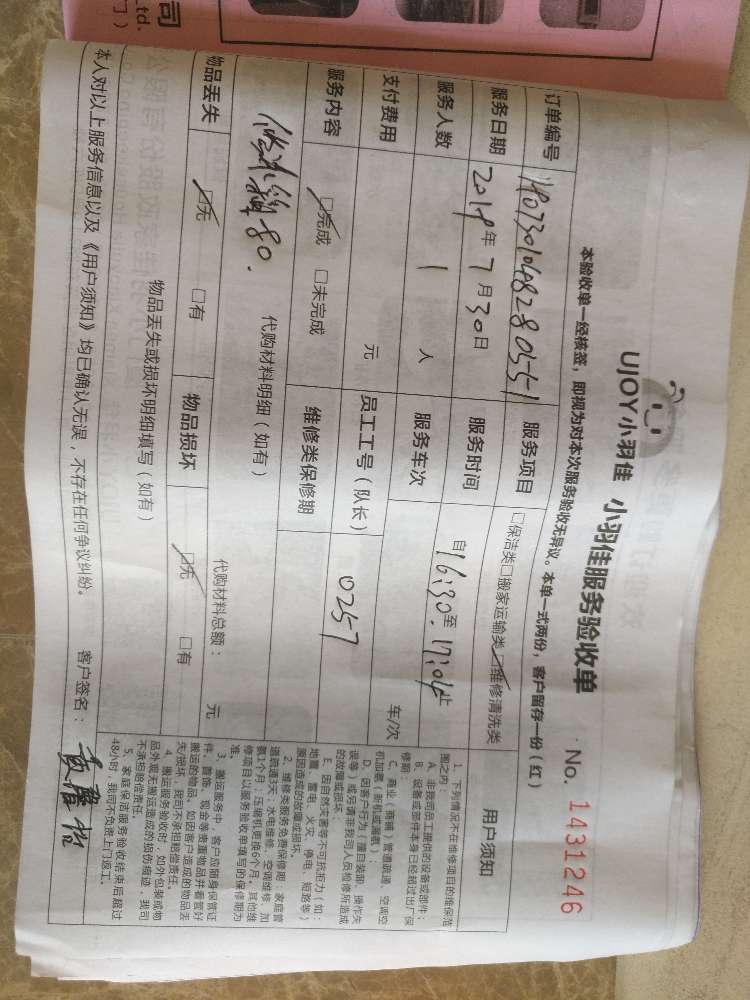 司
Ltd.
门）
UJOY小羽佳 小羽佳服务验收单 No. 1431246
本验收单一经核签，即视为对本次服务验收无异议。本单一式两份，客户留存一份（红）
订单编号 服务项目 □保洁类□搬家运输类□维修清洗类
服务日期 2019年7月30日 服务时间 自16:30至17:04止
服务人数 1 人 服务车次 车/次
支付费用 元 员工工号（队长） 0257
服务内容 □完成 □未完成 维修类保修期
代购材料明细（如有）
80.
代购材料总额： 元
物品丢失 □无 □有 物品损坏 □无 □有
物品丢失或损坏明细填写（如有）
本人对以上服务信息以及《用户须知》均已确认无误，不存在任何争议纠纷。 客户签名：
用户须知
1. 下列情况不在维修项目的维保范
围之内：
A、非我司员工提供的设备或部件；
B、设备或部件本身已经超过出厂保
修期；
C、商业（商铺）管道疏通、空调空
机加氨（新机或漏氨）；
D、因客户行为（擅自装卸、操作失
误等）或另请非我司人员检修所造成
的故障或损坏
E、因自然灾害等不可抗拒力（如：
地震、雷电、火灾、停电、短路等）
原因造成的故障或损坏
2、维修类服务免费保修期：家庭管
道疏通3天；水电维修、空调维修、加
氨1个月；压缩机更换6个月。其他维
修项目以服务验收单填写的保修期为
准。
3、搬运服务中，客户应随身保管证
件、首饰、现金等贵重物品并看管好
搬运的物品。如因客户造成的物品丢
失/损坏，我司不承担赔偿责任。
4、搬运服务验收时，如外包装或物
品外观无搬运造成的损伤痕迹，我司
不承担赔偿责任。
5、家庭保洁服务验收结束后超过
48小时，我司不负责上门返工。